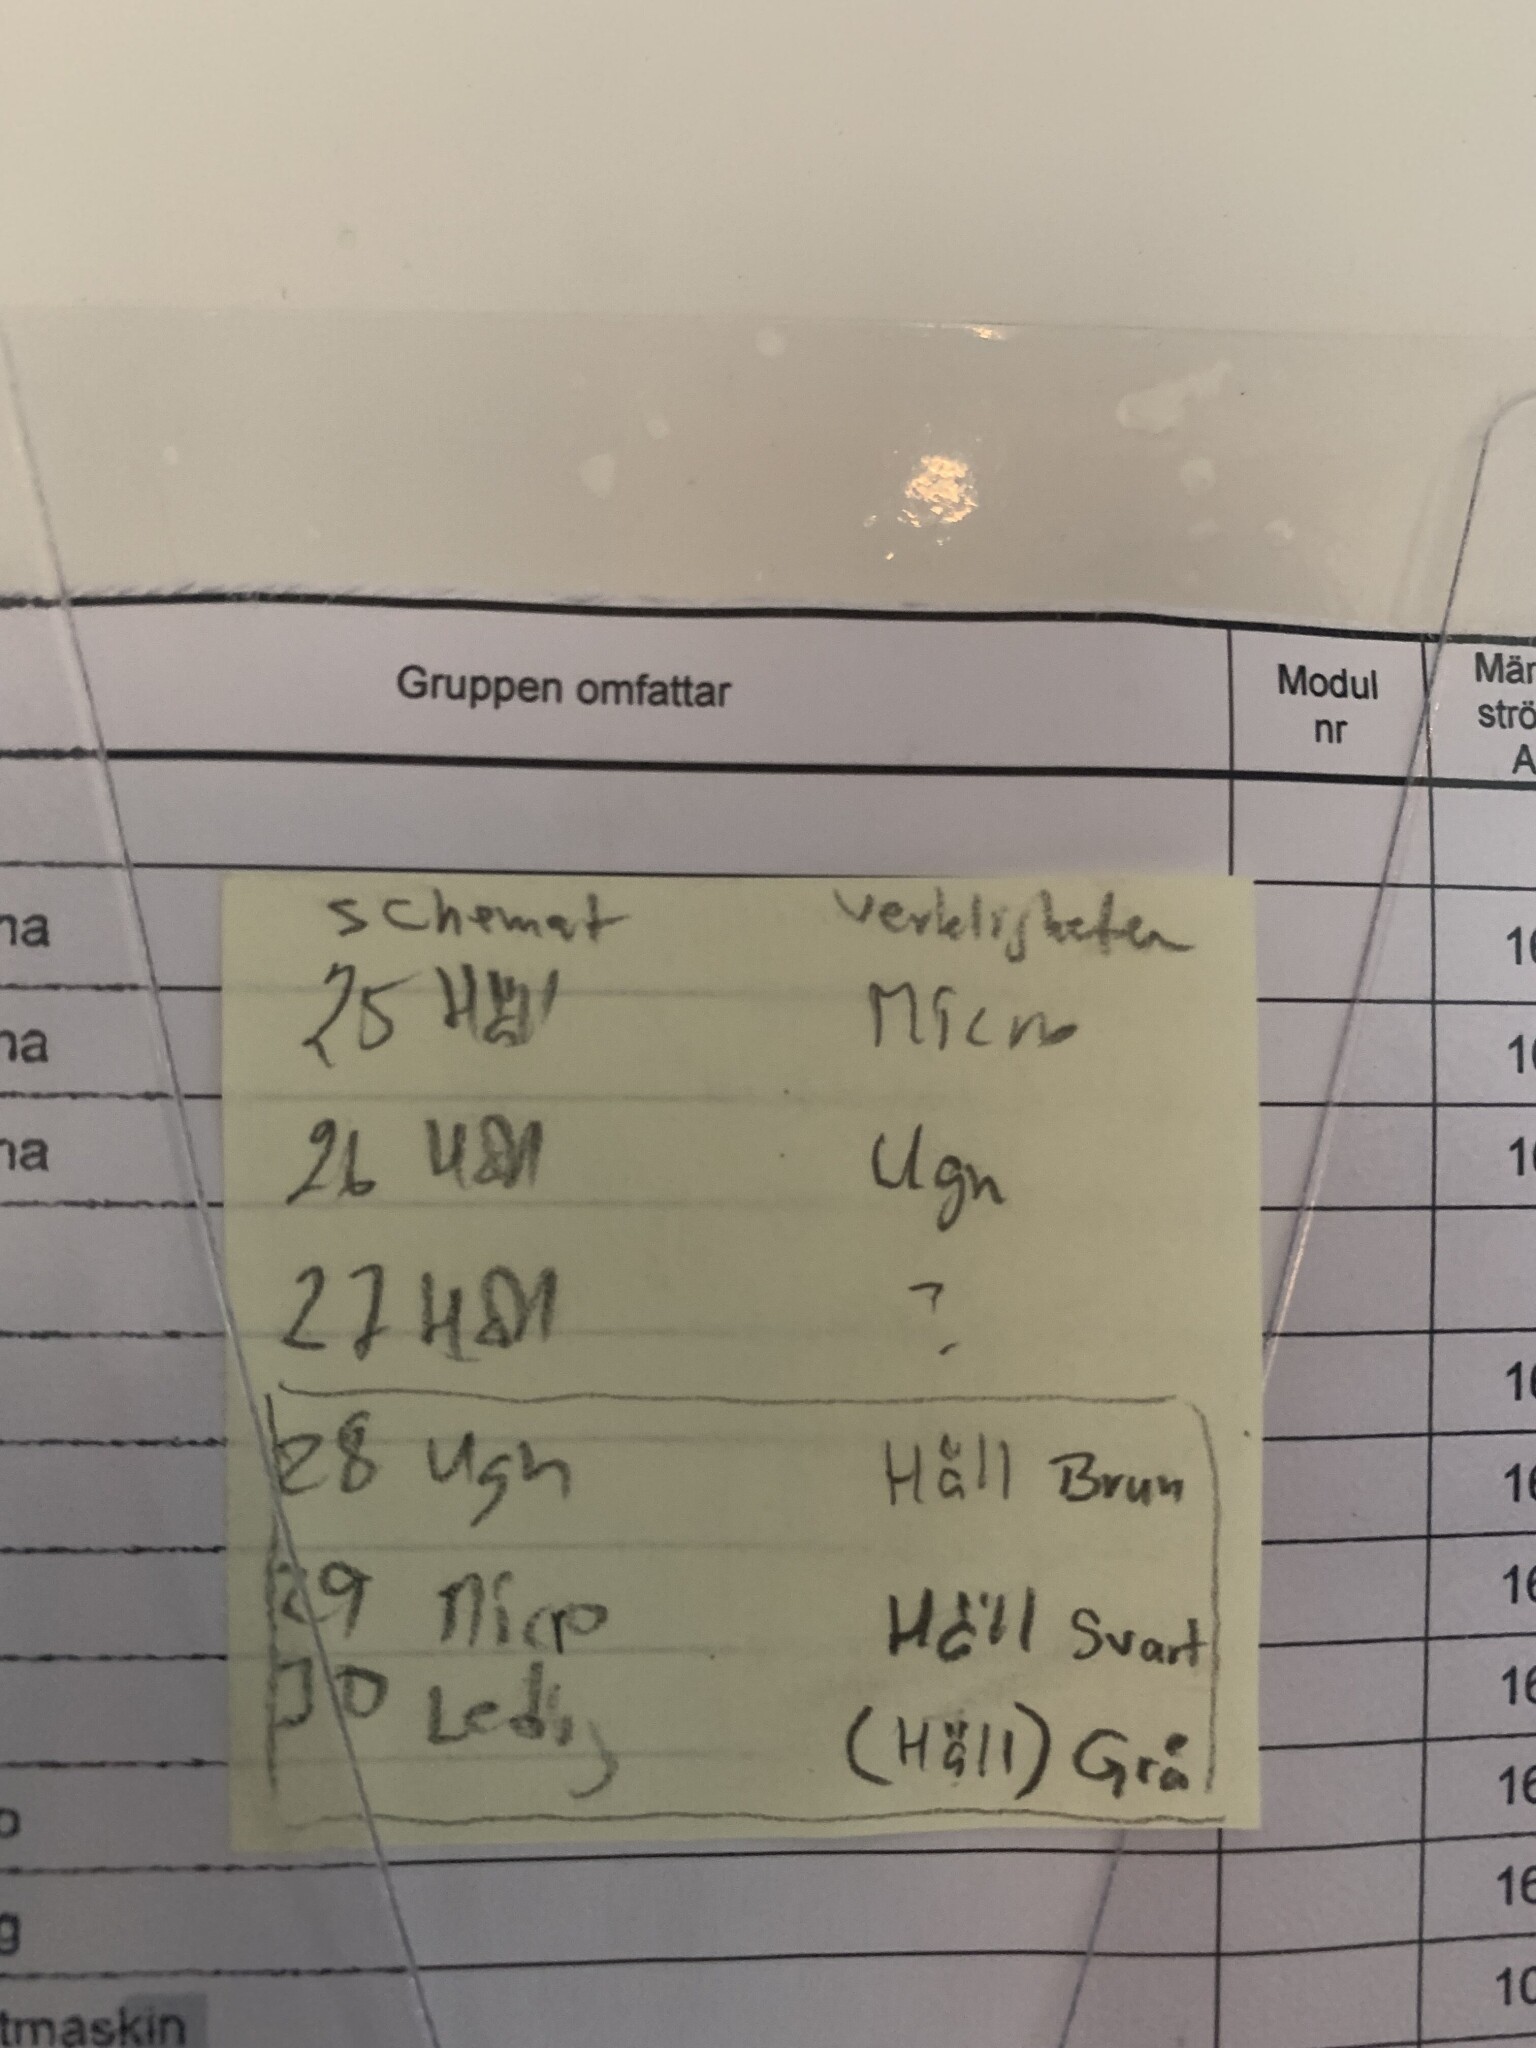 Gruppen omfattar Modul Mär
nr strö
A
schemat verkligheten
na 16
25 Häll Micro
na 16
26 Häll Ugn
na 16
27 Häll ?
16
28 Ugn Häll Brun
16
29 Micro Häll Svart
16
30 Ledig (Häll) Grå
16
o 16
g 16
tmaskin 10